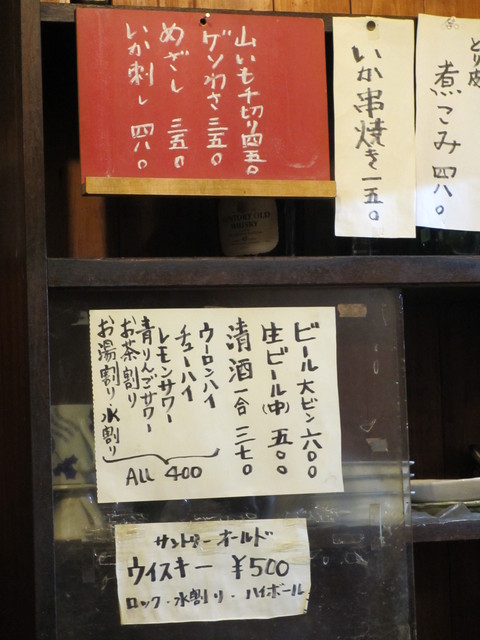 とり皮
煮こみ 四八〇
いか串焼き 一五〇
山いも千切り 四五〇
ゲソわさ 三五〇
めざし 三五〇
いか刺し 四八〇
OLD
WHISKY
ビール大ビン 六〇〇
生ビール(中) 五〇〇
清酒一合 三七〇
ウーロンハイ
チューハイ
レモンサワー
青りんごサワー
お茶割り
お湯割り・水割り
ALL 400
サントリーオールド
ウイスキー ¥500
ロック・水割り・ハイボール